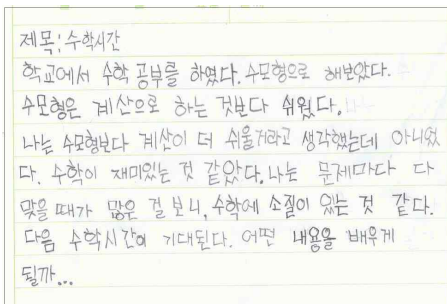 제목: 수학시간
학교에서 수학 공부를 하였다. 수모형으로 해보았다.
수모형은 계산으로 하는 것보다 쉬웠다.
나는 수모형보다 계산이 더 쉬울거라고 생각했는데 아니었
다. 수학이 재미있는 것 같았다. 나는 문제마다 다
맞을 때가 많은 걸 보니, 수학에 소질이 있는 것 같다.
다음 수학시간이 기대된다. 어떤 내용을 배우게
될까...